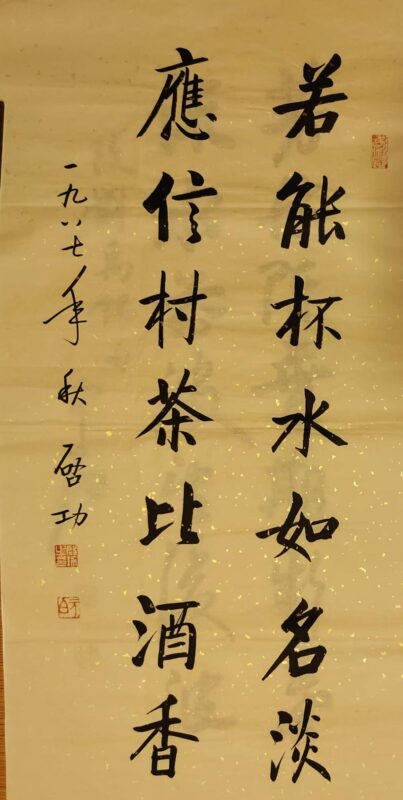 若能杯水如名淡
應信村茶比酒香
一九八七年秋 啓功